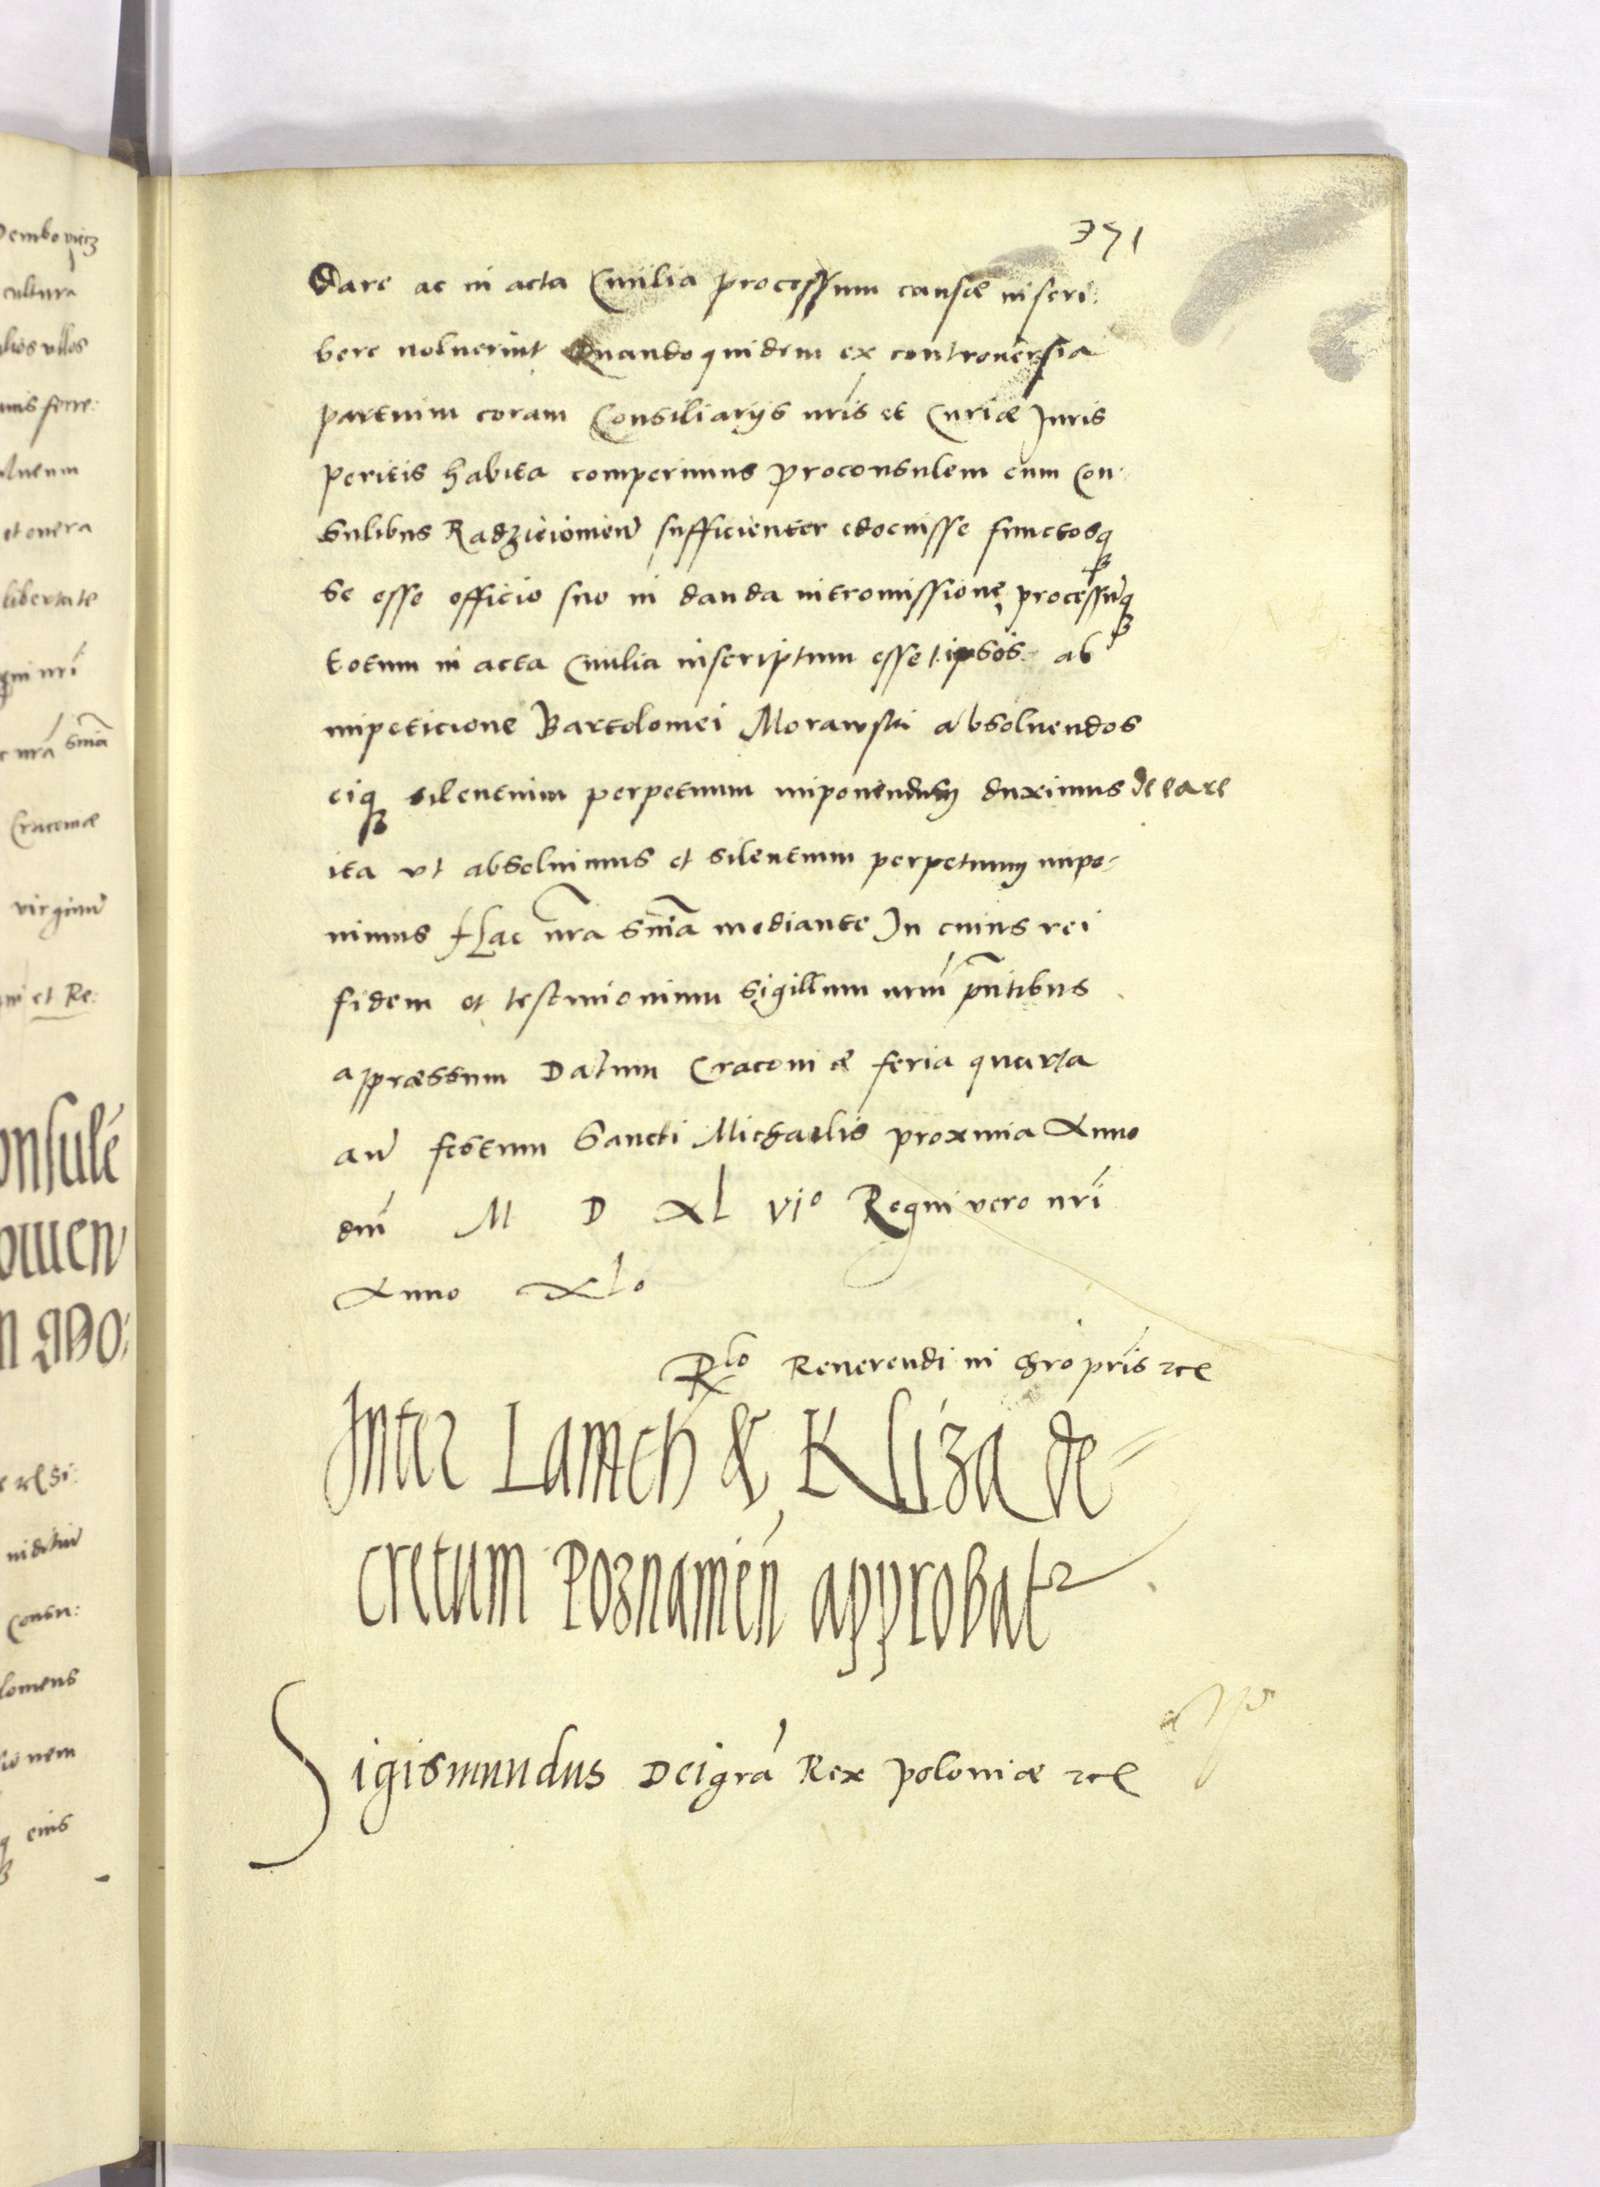 371
Dare ac in acta Civilia processum causæ inscri:
bere noluerint Quandoquidem ex controversia
partium coram Consiliarijs nris et Curiæ Juris
peritis habita comperimus proconsulem cum Con:
sulibus Radzieiovien sufficienter edocuisse functosq
se esse officio suo in danda intromissione, processuq
totum in acta Civilia inscriptum esse ipsos ab
impeticione Bartolomei Morawski absolvendos
eiq silentium perpetuum imponendum duximus decare
ita ut absolvimus et silentium perpetuum impo-
nimus Hac nra snia mediante In cuius rei
fidem et testimonium Sigillum nrm pntibus
appræssum Datum Cracoviæ feria quarta
an festum Sancti Michaelis proxima Anno
dni M D XL VIo Regni vero nri
Anno XLo
Rlo Reverendi in Chro pris etc
Inter Lamch & Kliza de-
cretum Poznamien approbatr
Sigismundus Dei gra Rex Poloniæ etc
Dembo
cultura
ullos
ferre:
et onera
libertate
nri
nra snia
Cracoviæ
virginu
et Re:
onsule
owien
m Mo:
Consu:
lomeus
nem
eius